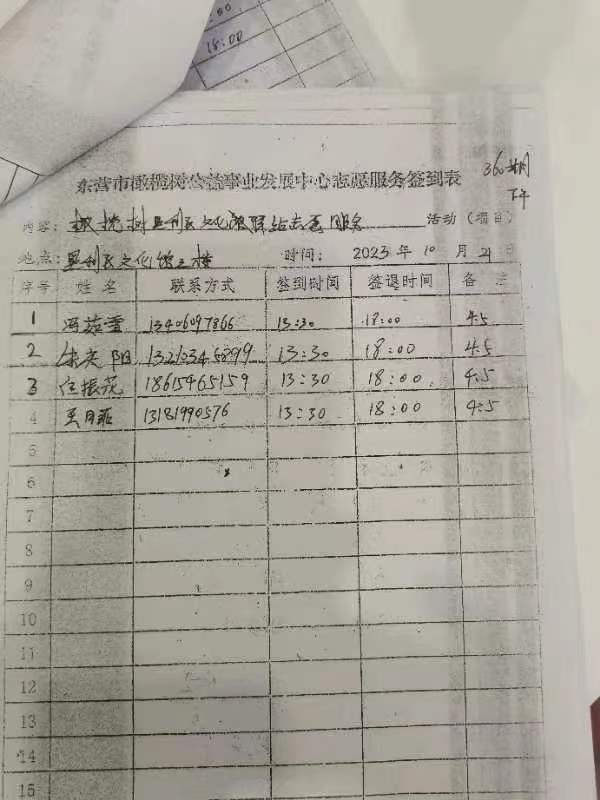 :00
18:00
东营市橄榄树公益事业发展中心志愿服务签到表
360 下午
内容: 橄榄树垦利区文化馆驿站志愿服务 活动(项目)
地点: 垦利区文化馆三楼 时间: 2023年10月21日
序号 姓名 联系方式 签到时间 签退时间 备注
1 冯茹雪 13406097866 13:30 18:00 4.5
2 朱奕阳 1321 13:30 18:00 4.5
3 任振花 18615465159 13:30 18:00 4.5
4 月菲 13181990576 13:30 18:00 4.5
5
6
7
8
9
10
11
12
13
14
15